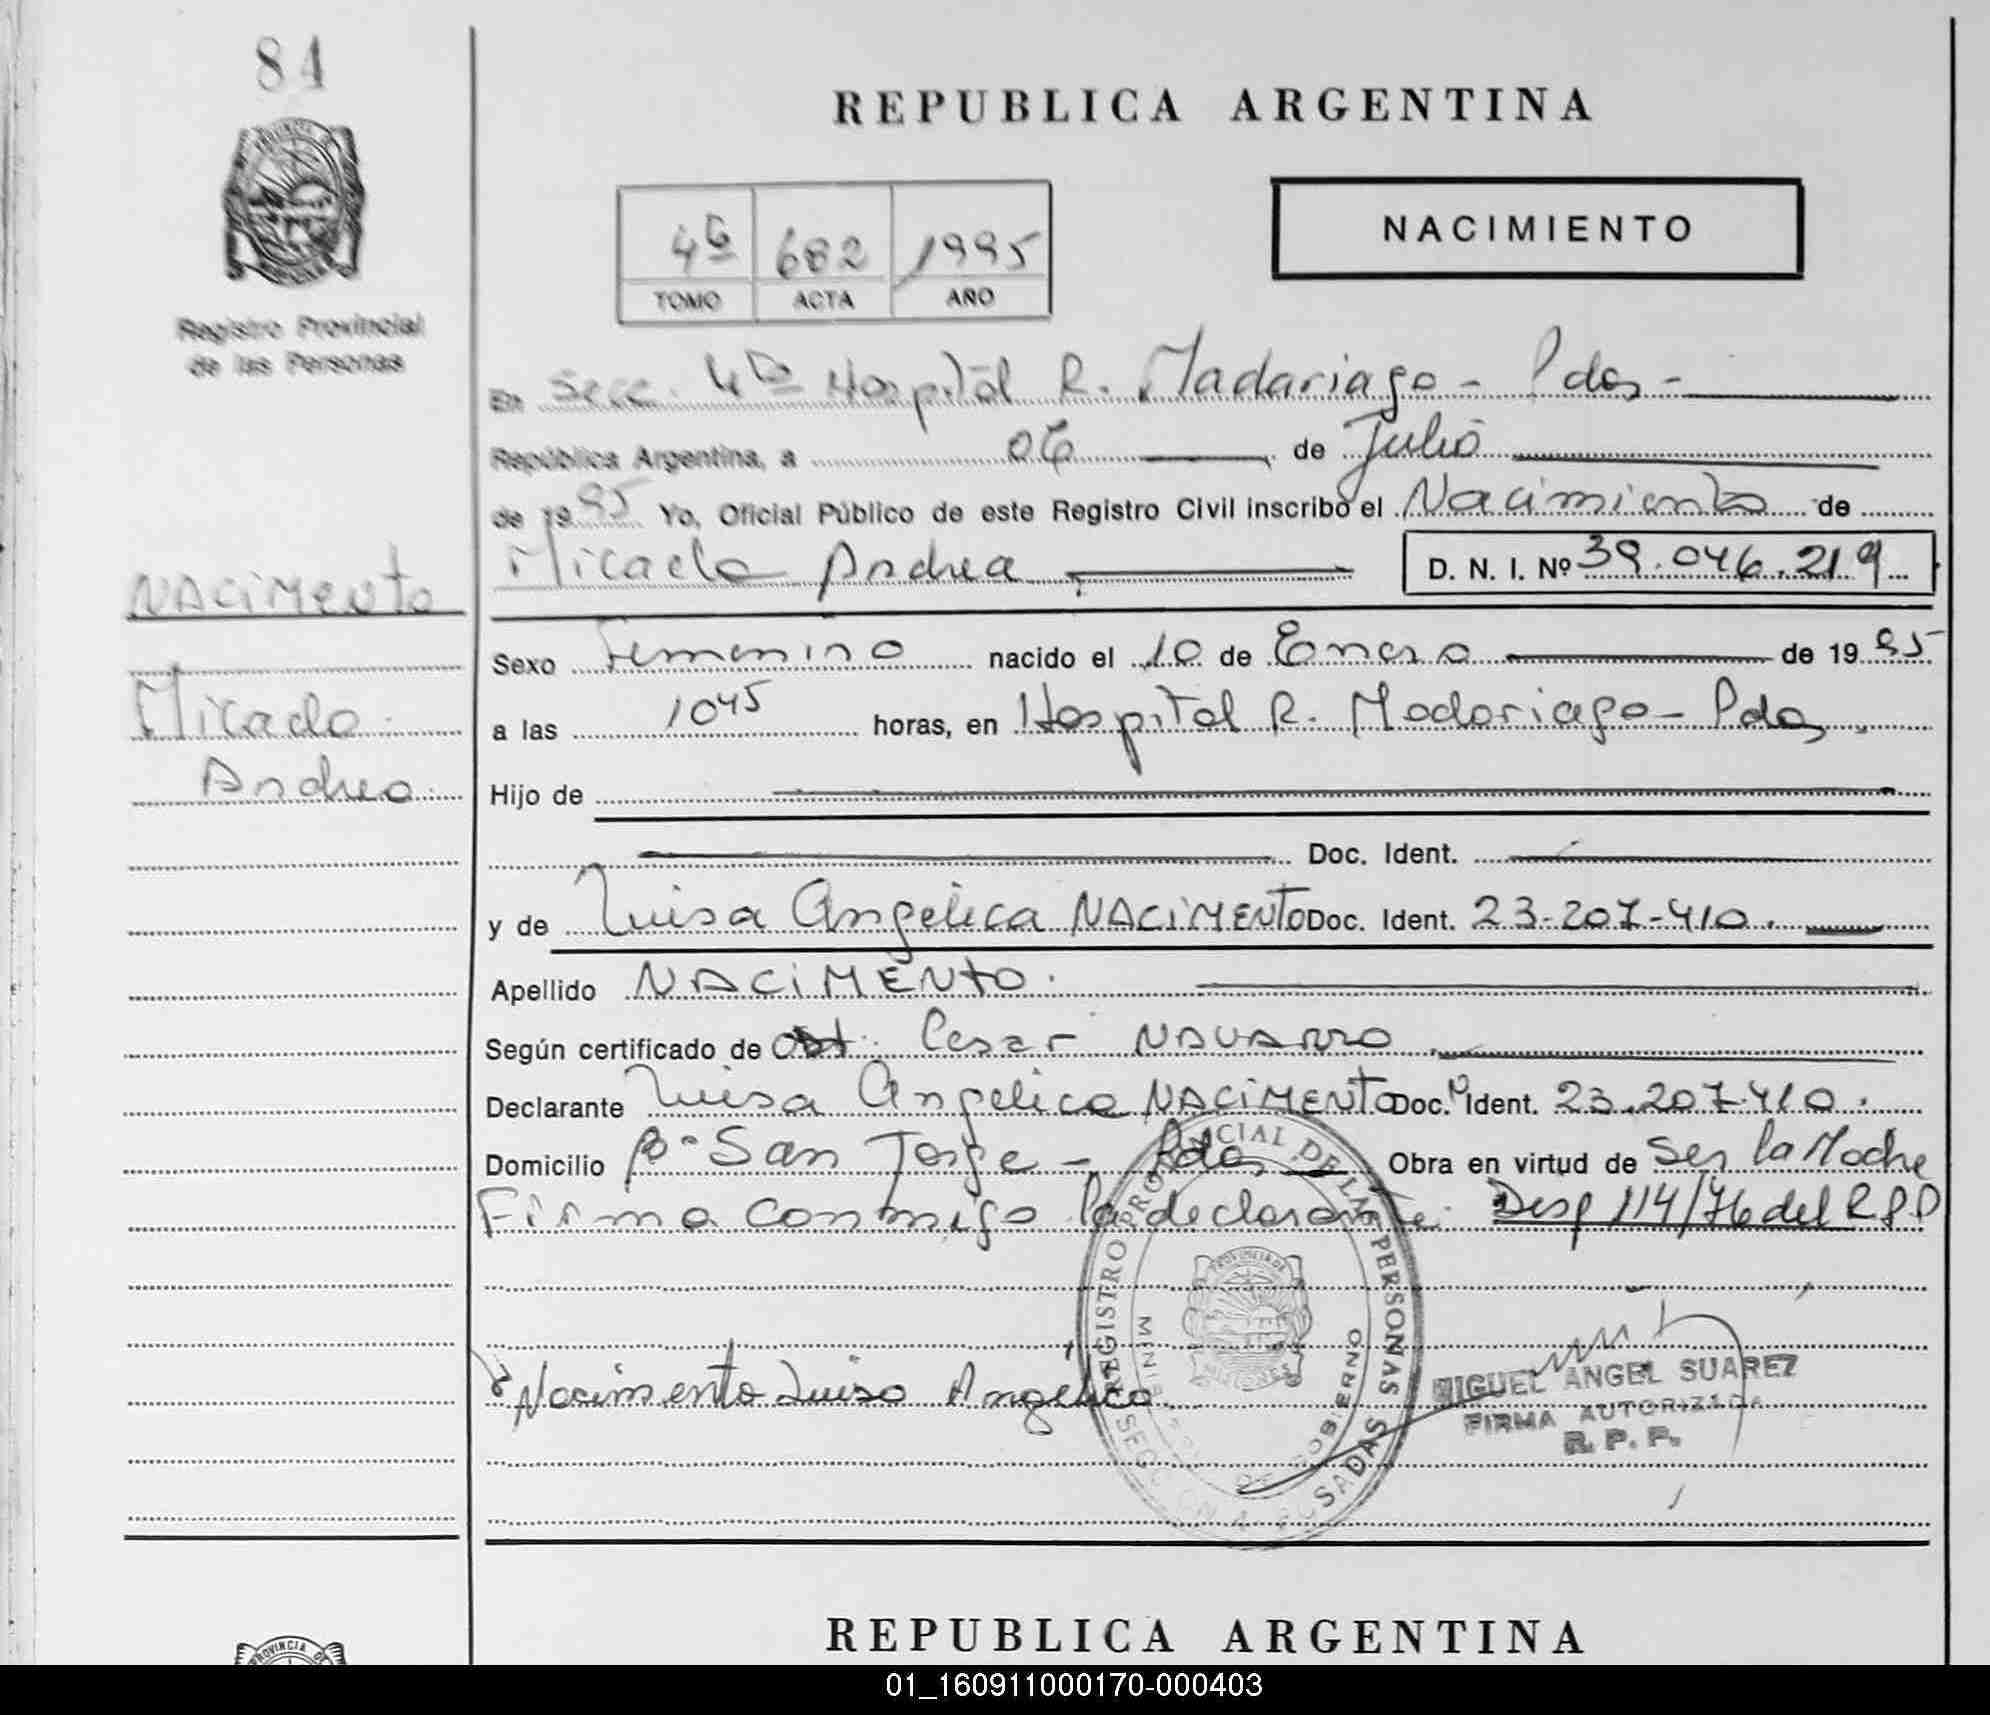 84
REPUBLICA ARGENTINA
NACIMIENTO
4º 682 1995
TOMO ACTA AÑO
Registro Provincial
de las Personas
En Secc. 4ta Hospital R. Madariaga - Pdas -
República Argentina, a 06 de Julio
de 1995 Yo, Oficial Público de este Registro Civil inscribo el Nacimiento de
Micaela Andrea D. N. I. Nº 39.046.219
NACIMENTO
Micaela
Andrea
Sexo Femenino nacido el 10 de Enero de 1995
a las 1045 horas, en Hospital R. Madariaga - Pdas
Hijo de
Doc. Ident.
y de Luisa Angélica NACIMENTO Doc. Ident. 23-207-410.
Apellido NACIMENTO.
Según certificado de Obst. Cesar NAVARRO
Declarante Luisa Angelica NACIMENTO Doc. Ident. 23.207.410.
Domicilio Bº San Jorge - Pdas Obra en virtud de Ser la Madre
Firma conmigo la declarante. Disp 114/76 del R P P
REGISTRO PROVINCIAL DE LAS PERSONAS
DE GOBIERNO
PROVINCIA DE
MISIONES
POSADAS
Nacimento Luisa Angélica
MIGUEL ANGEL SUAREZ
FIRMA AUTORIZADA
R. P. P.
REPUBLICA ARGENTINA
PROVINCIA DE
01_160911000170-000403